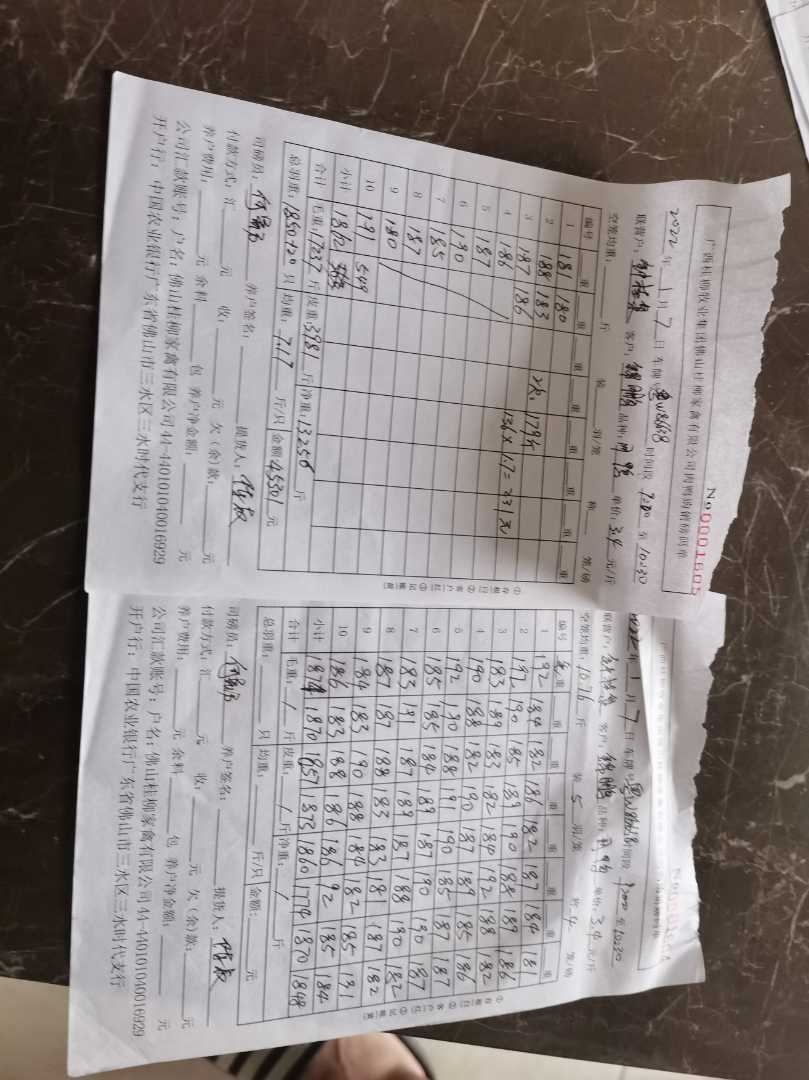 广西桂柳牧业集团佛山桂柳家禽有限公司肉鸭销售磅码单
No 0001605
2022年 1月 7日 车牌: 粤W8668 时间段 7:00 至 10:30
联营户: 客户: 锦鹏 品种: 单价 3.4 元/斤
空笼均重: 斤 装 羽/笼 称 笼/磅
编号 重 重 重 重 重 重 重 重
1 181 180
2 188 183
3 187 186
4 186
5 187
6 190
7 185
8 187
9 180
10 191 508
小计 1862
2次 1179斤
136×1.7=231元
合计 毛重: 17237 斤 皮重: 3981 斤 净重: 13256 斤
总羽重: 1850+20 只 均重: 7.17 斤/只 金额: 45301 元
司磅员: 养户签名: 提货人:
付款方式: 汇 元 收: 元 欠(余)款: 元
养户费用: 元 余料 包 养户净金额: 元
公司汇款账号: 户名: 佛山桂柳家禽有限公司 44-440101040016929
开户行: 中国农业银行广东省佛山市三水区三水时代支行
年 1月 7日 车牌: 时间段 至 10:30
联营户: 客户: 锦鹏 品种: 单价: 3.4 元/斤
空笼均重: 10.76 斤 装 5 羽/笼 称 4 笼/磅
编号 重 重 重 重 重 重 重 重
1 192 184 182 186 182 187 184 181
2 192 190 185 189 190 188 189 186
3 183 189 182 182 184 192 188 182
4 190 188 182 190 187 189 185 186
5 192 190 188 191 190 185 187 187
6 185 185 184 189 187 190 190 187
7 183 181 187 189 187 188 190 182
8 187 187 188 183 183 181 187 182
9 184 183 190 188 184 182 185 181
10 186 183 188 186 186 92 185 184
小计 1874 1870 1857 1873 1860 1774 1870 1848
合计 毛重: / 斤 皮重: / 斤 净重: / 斤
总羽重: 只 均重: 斤/只 金额: 元
司磅员: 养户签名: 提货人:
付款方式: 汇 元 收: 元 欠(余)款: 元
养户费用: 元 余料 包 养户净金额: 元
公司汇款账号: 户名: 佛山桂柳家禽有限公司 44-440101040016929
开户行: 中国农业银行广东省佛山市三水区三水时代支行